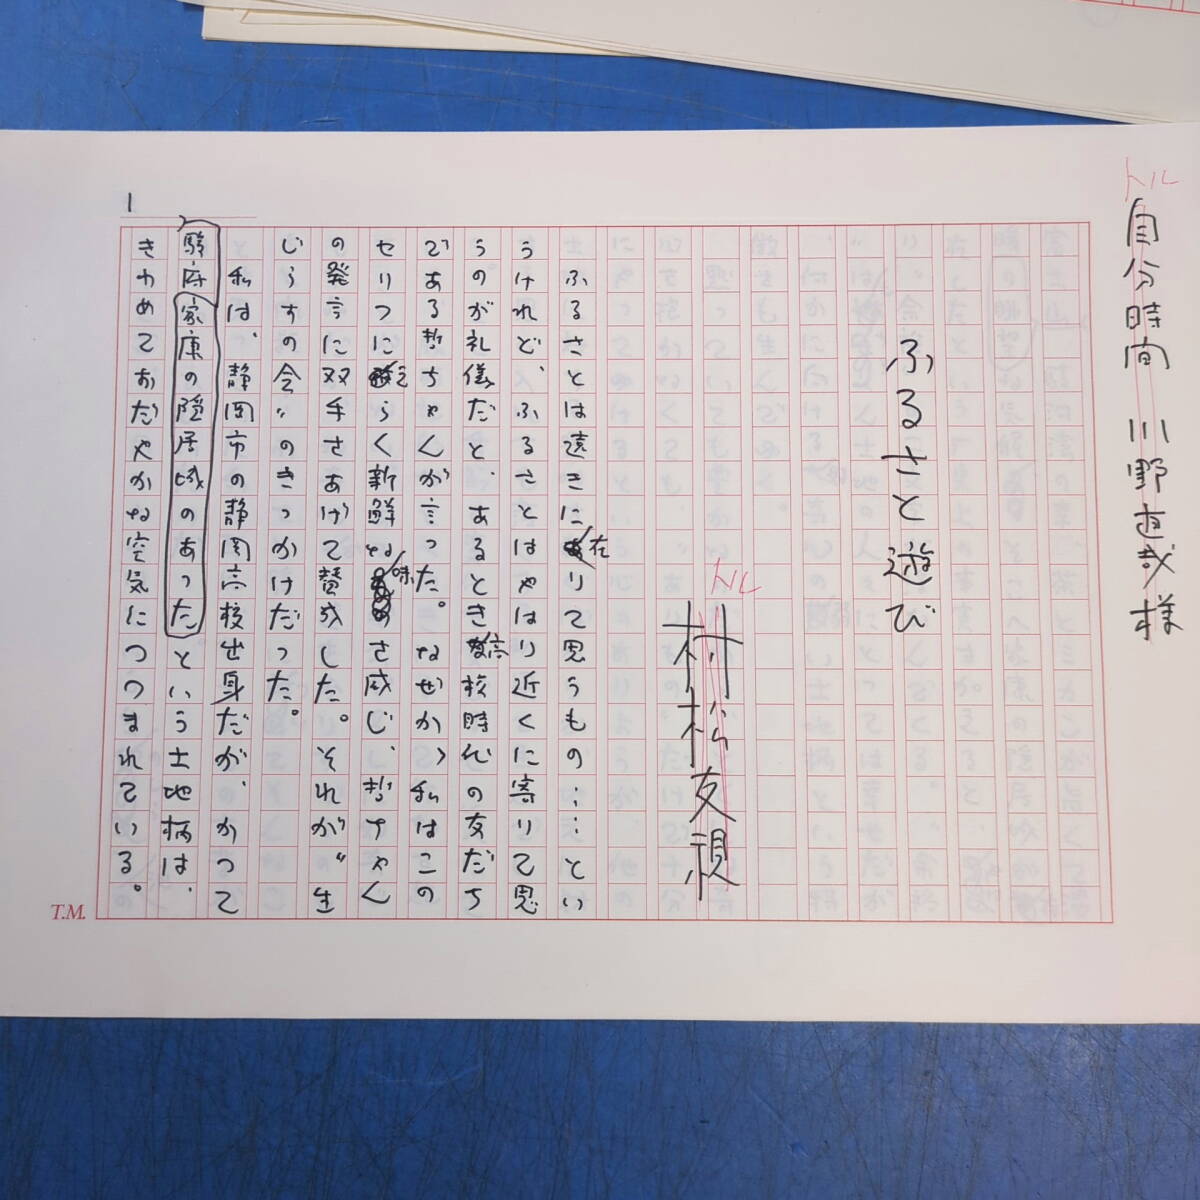 トル
自分時間 川野直哉様
ふるさと遊び
トル
村松友視
1
ふるさとは遠きに在りて思うもの……とい
うけれど、ふるさとはやはり近くに寄りて思
うのが礼儀だと、あるとき高校時代の友だち
である哲ちゃんが言った。なぜか、私はこの
セリフにえらく新鮮な味を感じ、哲ちゃん
の発言に双手をあげて賛成した。それが〝生
じらすの会〟のきっかけだった。
私は、静岡市の静岡高校出身だが、かつて
駿府家康の隠居城のあったという土地柄は、
きわめておだやかな空気につつまれている。
T.M.